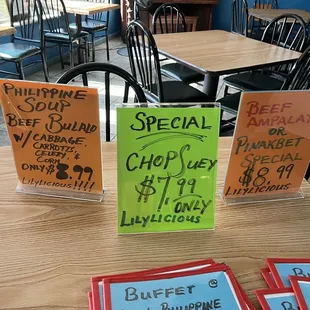 PHILIPPINE
SOUP
BEEF BULALO
W/ CABBAGE,
CARROTZS,
CELERY, &
CORN
ONLY $8.99
LILYLICIOUS!!!!
SPECIAL
CHOPSUEY
$7.99
ONLY
LILYLICIOUS
BEEF
AMPALAYA
OR
PINAKBET
SPECIAL
$8.99
LILYLICIOUS
BUFFET
PHILIPPINE